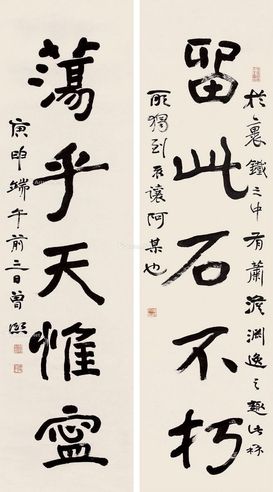 留此石不朽
於裹鐵之中有蕭澹淵逸之趣此秝
雅獨到不讓阿某也
蕩乎天惟寍
庚申端午前三日曾熙